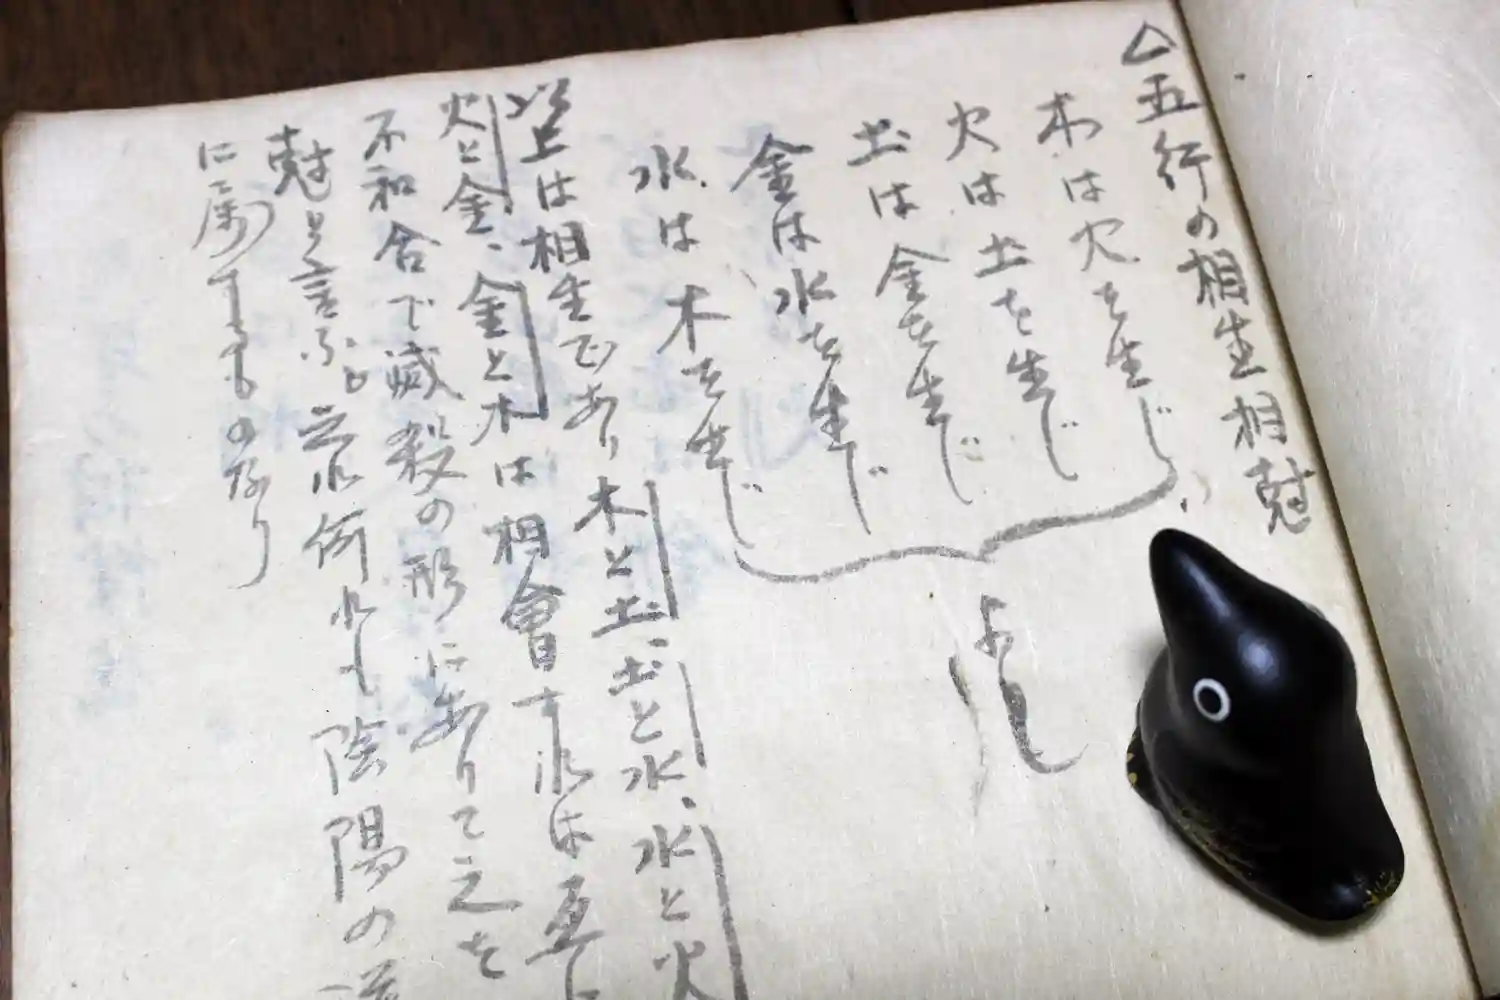 △五行の相生相尅
木は火を生じ
火は土を生じ
土は金を生じ
金は水を生じ
水は木を生じ
よし
以上は相生であり木と土、土と水、水と火
火と金、金と木は相會すれば互に
不和合で滅殺の形にありて之を
尅と言ふ。之れ何れも陰陽の道
に属するものなり